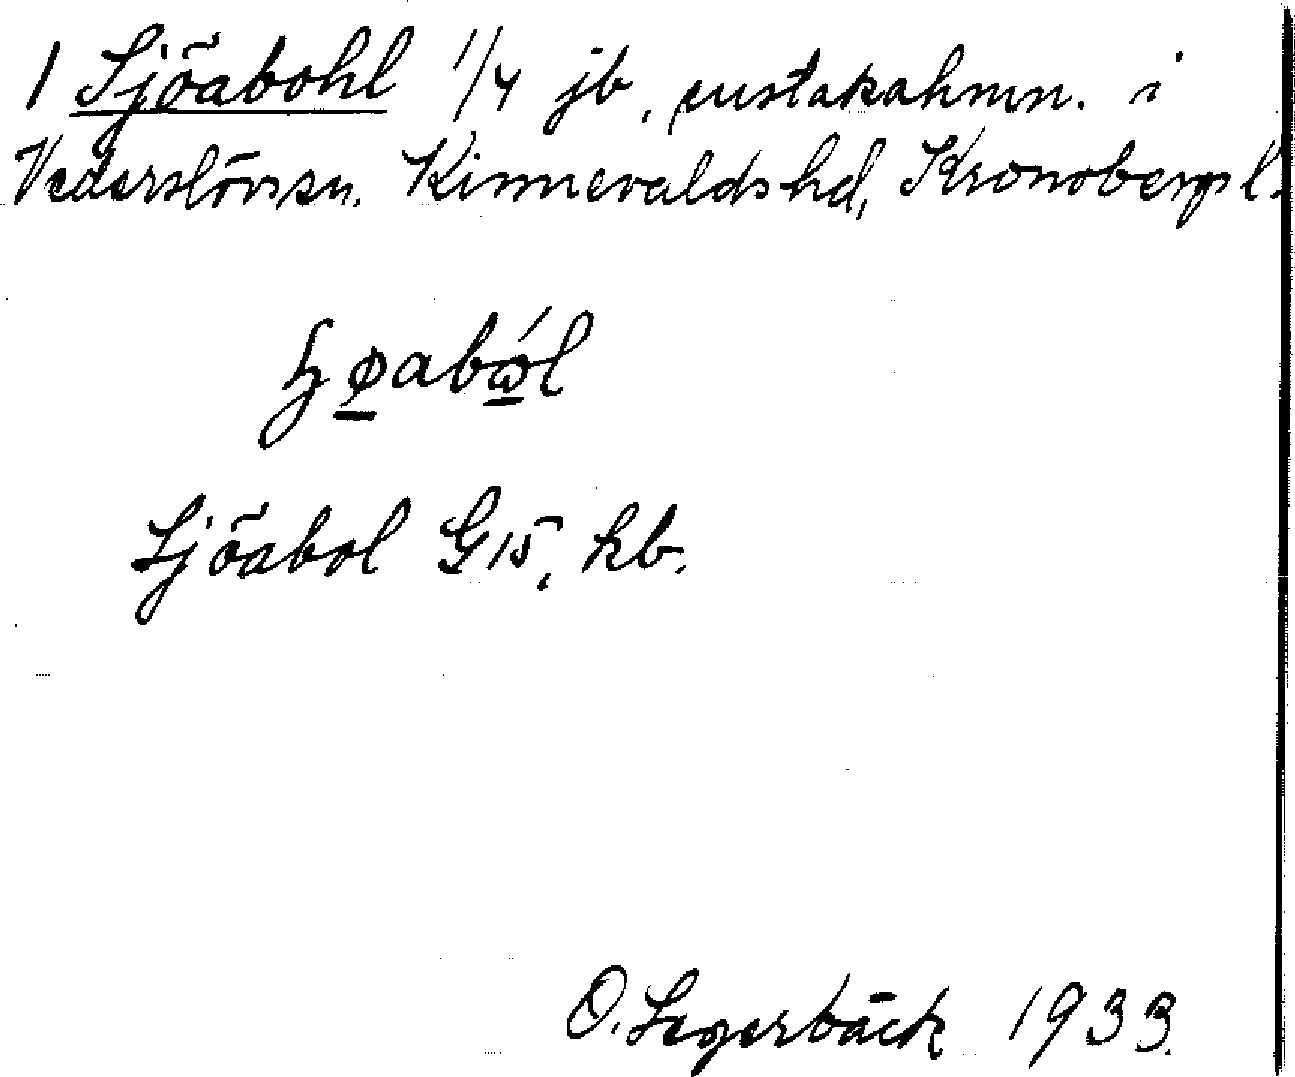 1 Sjöabohl 1/4 jb, enstakahmn. i
Vederslövssn. Kinnevaldshd, Kronobergsl.
Sjöabol G15, kb.
O. Segerbäck 1933.